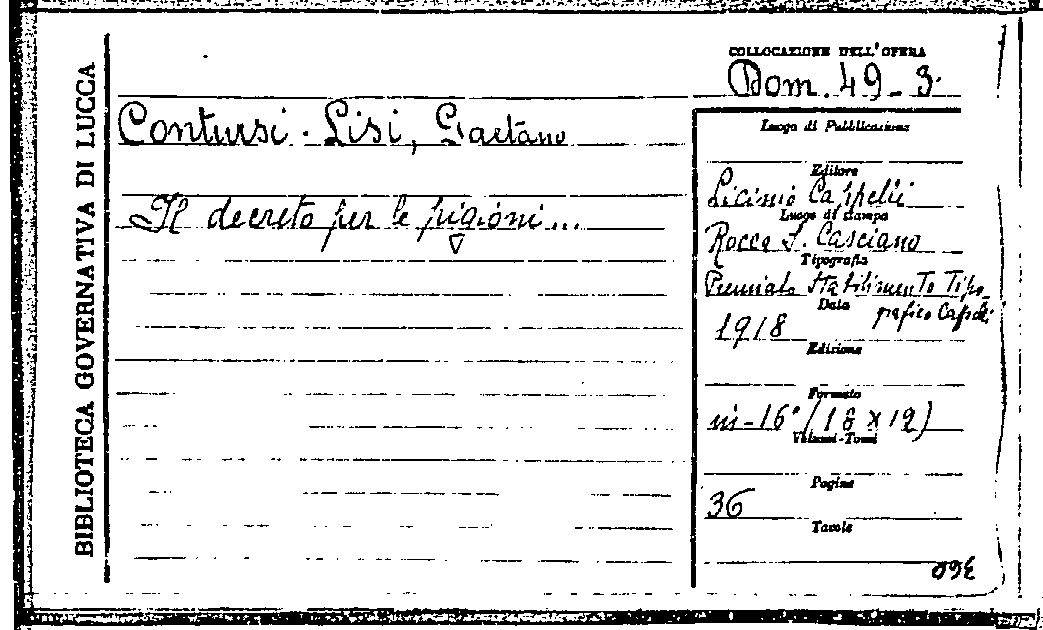 BIBLIOTECA GOVERNATIVA DI LUCCA
COLLOCAZIONE DELL'OPERA
Dom. 49-3.
Contursi-Lisi, Gaetano
Il decreto per le pigioni...
Luogo di Pubblicazione
Editore
Licinio Cappelli
Luogo di stampa
Rocca S. Casciano
Tipografia
Premiato Stabilimento Tipo-
grafico Cappelli
Data
1918
Edizione
Formato
in-16° (18 x 12)
Volumi-Tomi
Pagine
36
Tavole